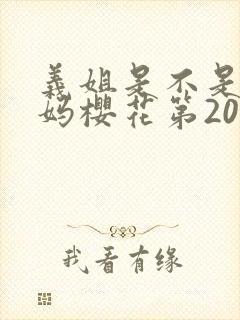 義姐是不是
妈樱花第20
我看有缘